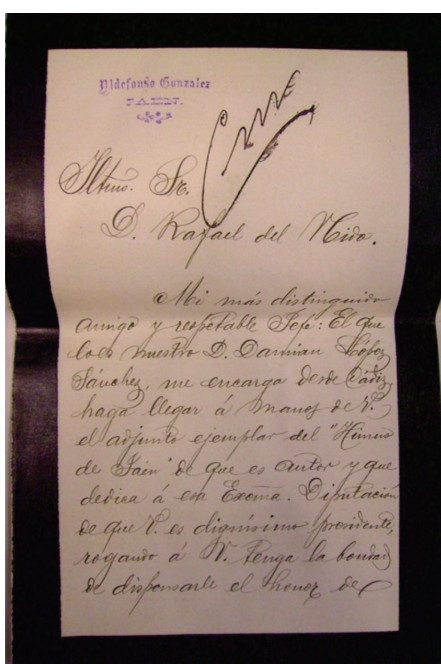 Yldefonso Gonzalez
JAEN.
Iltmo. Sr.
D. Rafael del Nido.
Mi más distinguido
amigo y respetable Jefe: El que
lo es nuestro D. Damian López
Sánchez, me encarga desde Cádiz,
haga llegar á manos de V.
el adjunto ejemplar del "Himno
de Jaén" de que es autor y que
dedica á esa Excma. Diputación
de que V. es dignísimo presidente,
rogando á V. tenga la bondad
de dispensarle el honor de